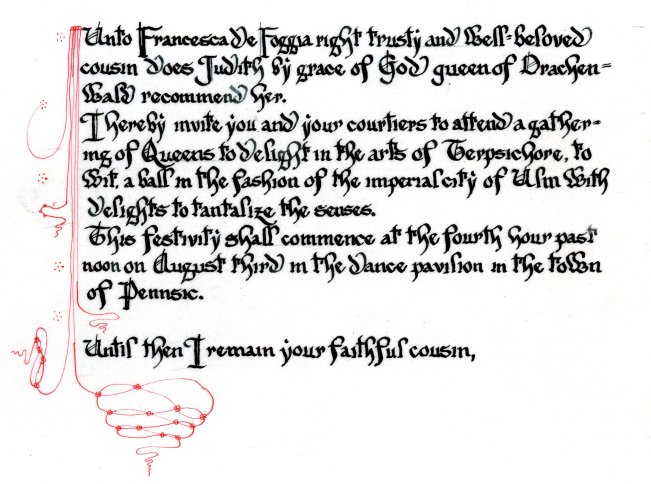 Unto Francesca de Foggia right trusty and well-beloved
cousin does Judith by grace of God queen of Drachen=
wald recommend her.
I hereby invite you and your courtiers to attend a gather-
ing of Queens to delight in the arts of Terpsichore, to
wit, a ball in the fashion of the imperial city of Ulm with
delights to tantalize the senses.
This festivity shall commence at the fourth hour past
noon on August third in the dance pavilion in the town
of Pennsic.
Until then I remain your faithful cousin,